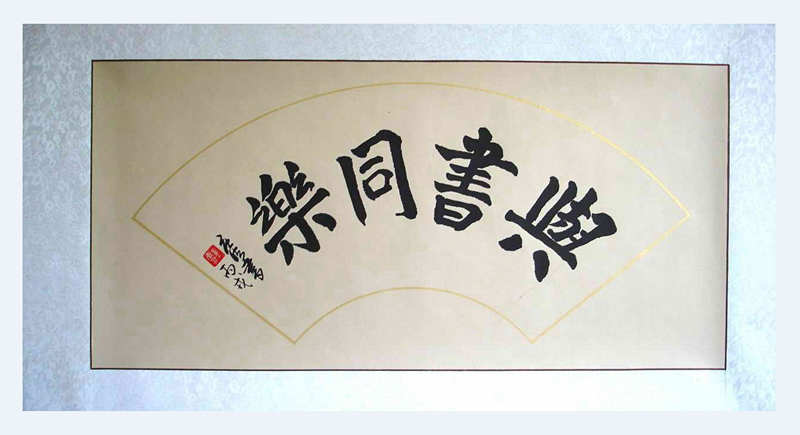 與書同樂